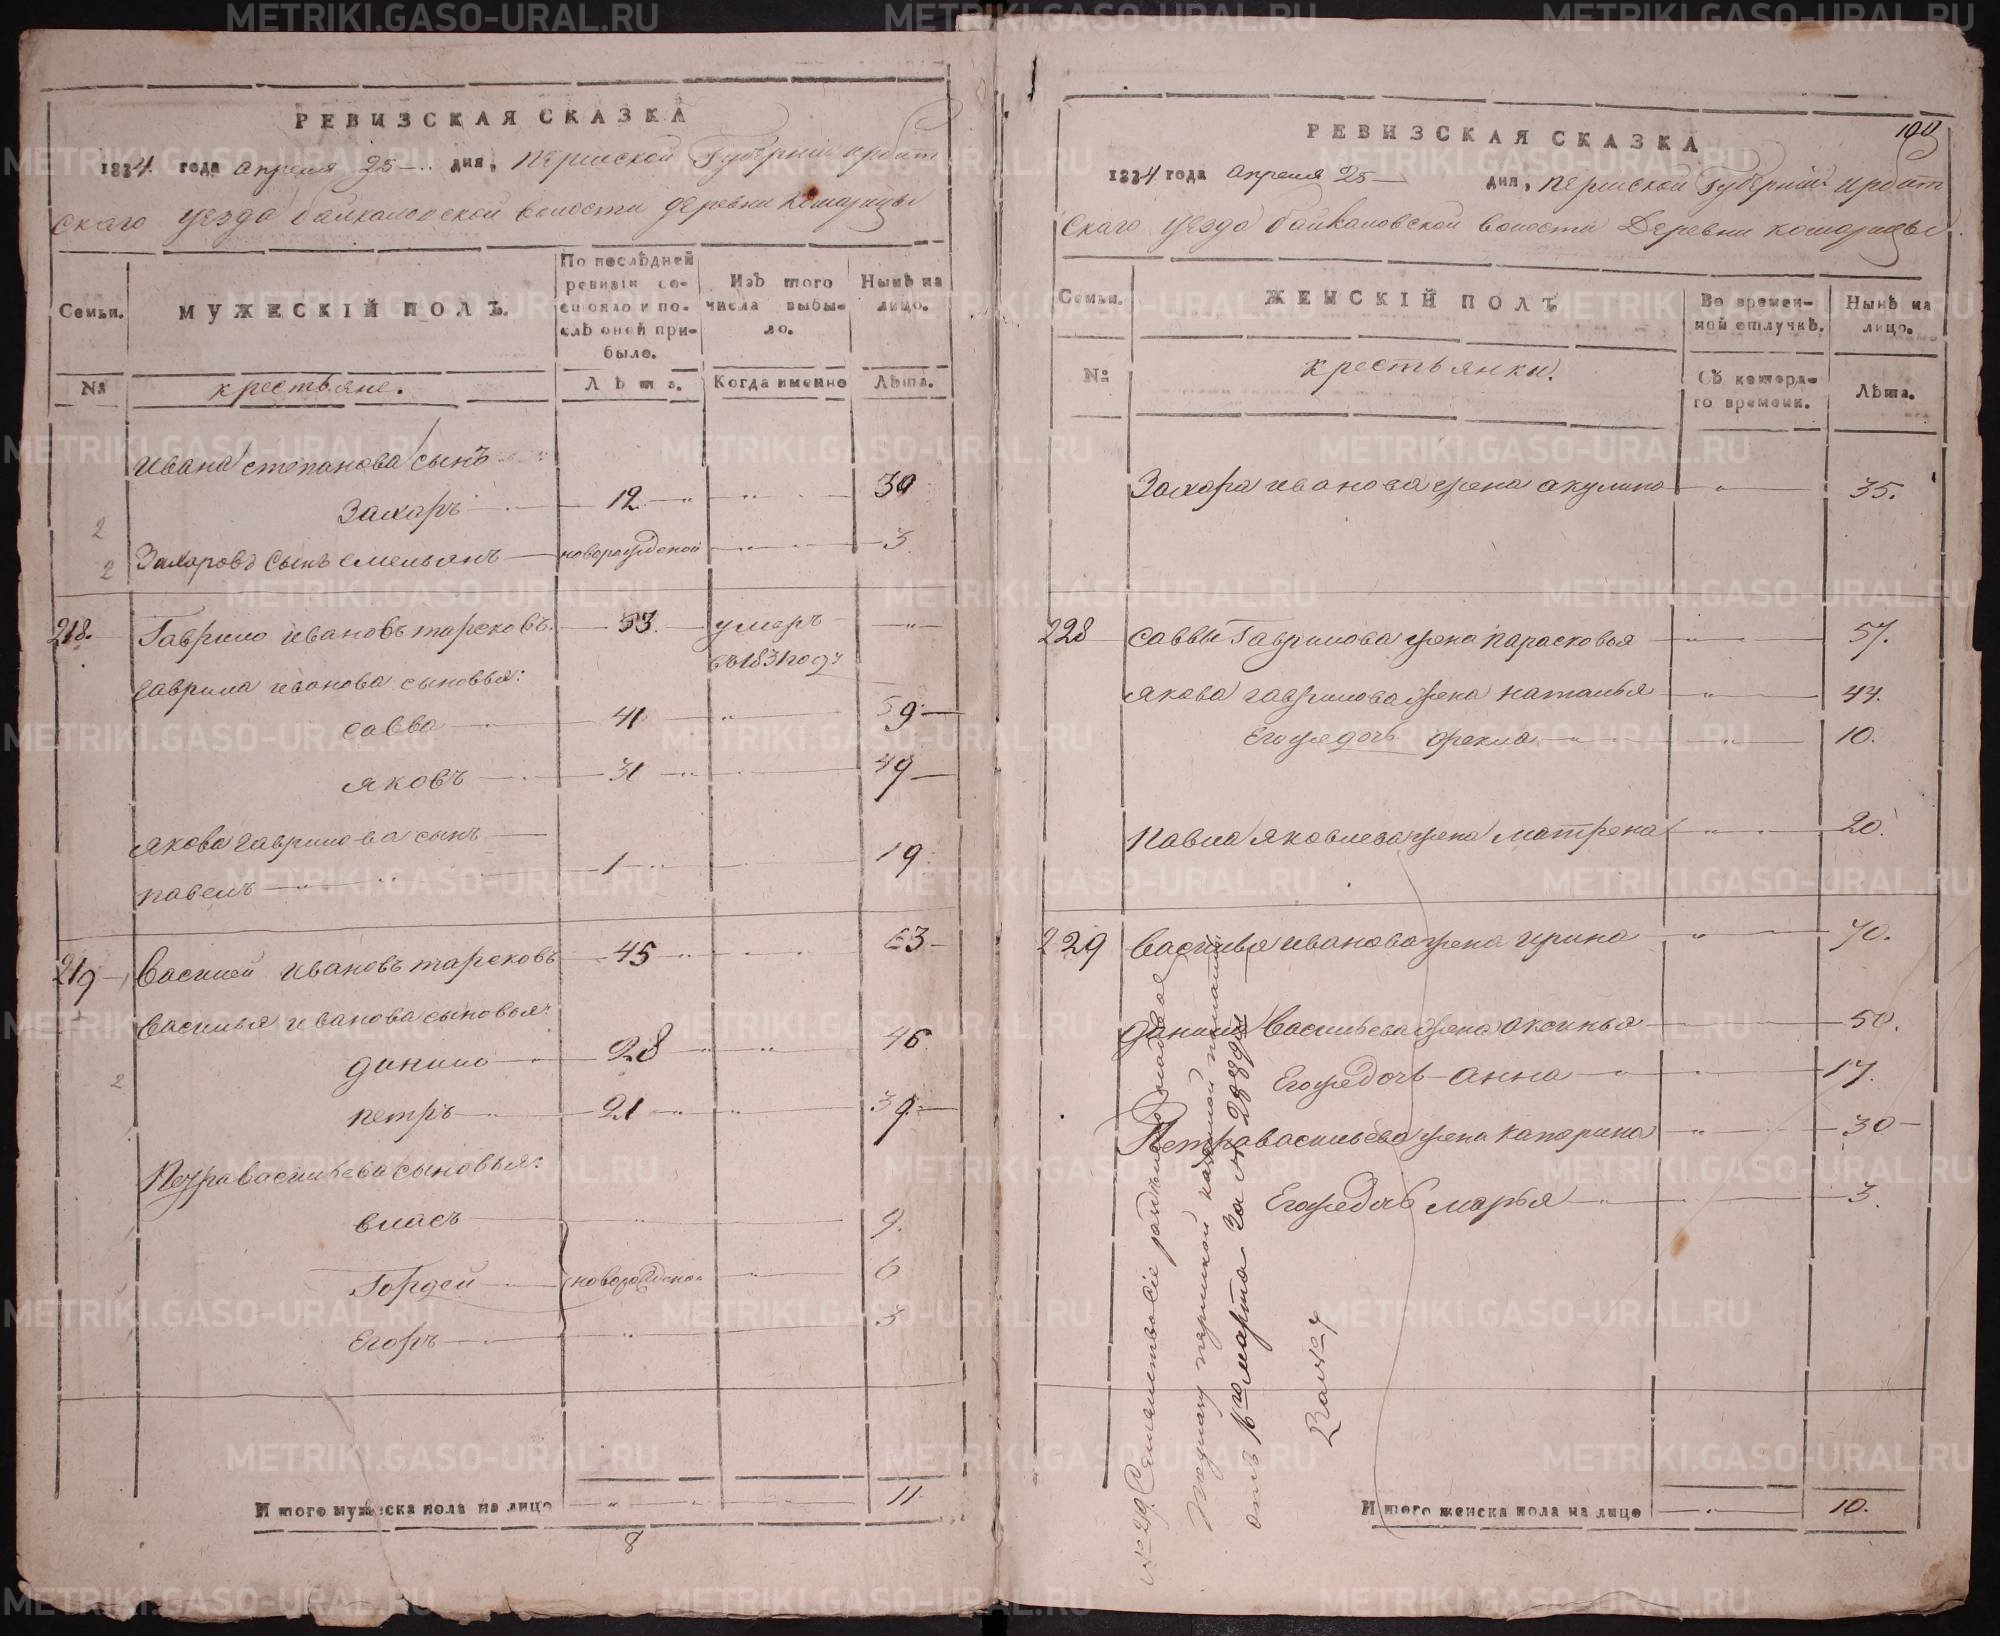 РЕВИЗСКАЯ СКАЗКА
1834 года апреля 25 дня, пермской Губерніи ирбит
скаго уезда байкаловской волости деревни комарицы
Семьи.
МУЖЕСКІЙ ПОЛЪ.
По послѣдней ревизіи состояло и послѣ оней прибыло.
Изъ того числа выбыло.
Нынѣ на лицо.
№
крестьяне.
Лѣта.
Когда именно
Лѣта.
Ивана степанова сынъ
Захаръ 12 30
2
2 Захаровъ сынъ емельянъ новорожденой 3
218. Гаврило ивановъ тарсковъ. 53 умеръ
въ 1831 году
гаврила иванова сыновья:
савва 41 59
яковъ 31 49
якова гаврилова сынъ
павелъ 1 19
219 Василей ивановъ тарсковъ 45 63
Василья иванова сыновья:
данило 28 46
2
петръ 21 39
Петра васильева сыновья:
власъ 9.
Гордей новорожденой 6
Егоръ 3
Итого мужеска пола на лицо 11
8
РЕВИЗСКАЯ СКАЗКА
100
1834 года апреля 25 дня, пермской Губерніи ирбит
скаго уезда байкаловской волости Деревни комарицы
Семьи.
ЖЕНСКІЙ ПОЛЪ
Во временной отлучкѣ.
Нынѣ на лицо.
№
крестьянки.
Съ котораго времени.
Лѣта.
Захара иванова жена акулина 35.
228 саввы Гаврилова жена парасковья 57.
якова гаврилова жена наталья 44.
Его же дочь фекла 10.
Павла яковлева жена матрена 20.
229 Василья иванова жена ирина 70.
данилы Васильева жена аксинья 50.
Его же дочь анна 17.
Петра васильева жена катерина 30
Его же дочь марья 3.
№ 29. Семейство сіе
пермской казенной палатой
отъ 16го марта за №
Итого женска пола на лицо 10.
METRIKI.GASO-URAL.RU